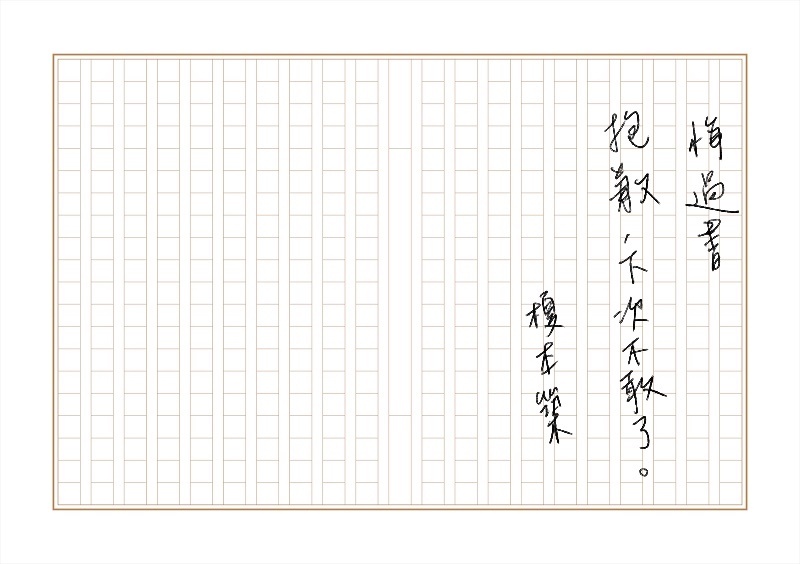 悔過書
抱歉,下次不敢了。
榎本策